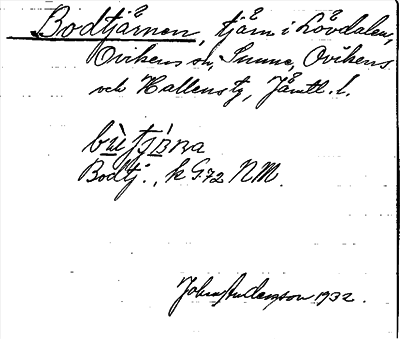 Bodtjärnen, tjärn i Lövdalen,
Ovikens sn, Sunne, Ovikens
och Hallens tg, Jämtl. l.
Bodtj., k G. 72 NM.
John Anderzson 1932.